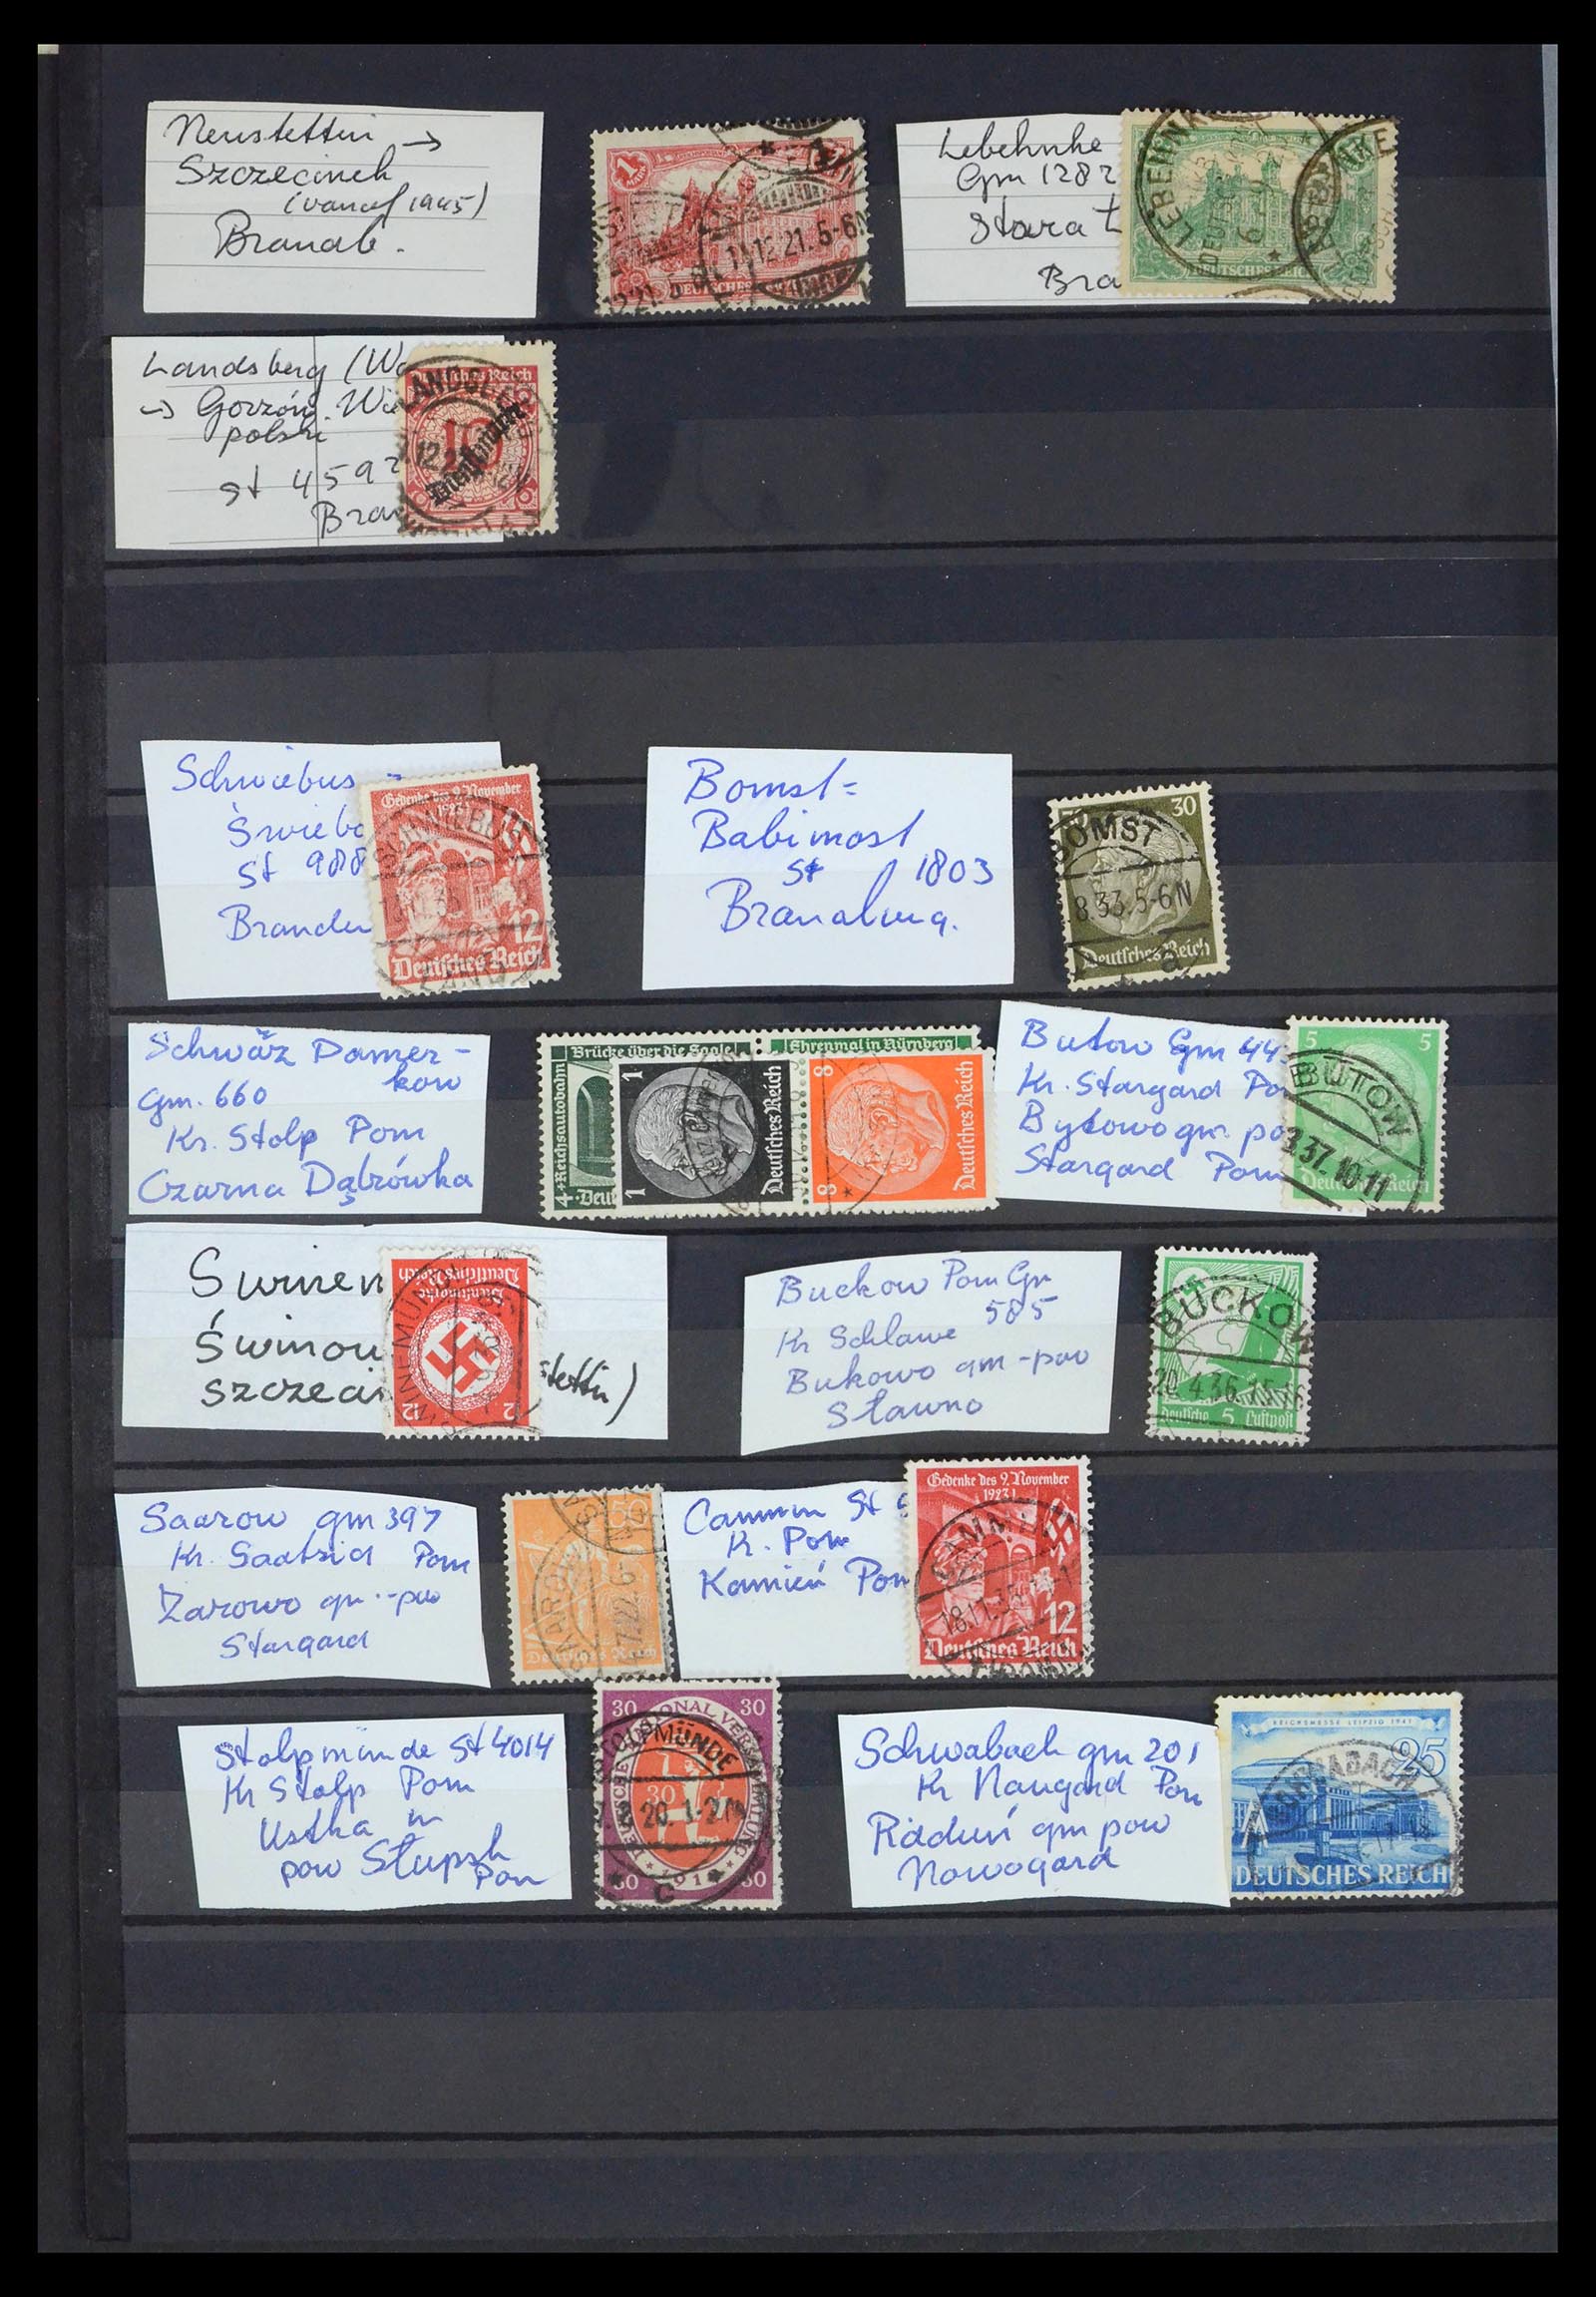 Neustettin →
Szczecinek
(vanaf 1945)
Brandb.
1
DEUTSCHES REICH
12.21.5-6N
Lebehnke
Gm 1282
Stara
Bra
LEBEHNKE
DEUTSCHES REICH
Landsberg (Wa
→ Gorzów Wie
polski
st 4592
Bran
Deutsches Reich
10
Dienstmarke
Schwiebus =
Świebo
St 988
Branden
Gedenke des 9. November
1923!
SCHWIEBUS
12
Deutsches Reich
Bomst =
Babimost
St 1803
Brandburg.
30
BOMST
8.33.5-6N
Deutsches Reich
a
Schwarz Damer-
kow
gm. 660
Kr. Stolp Pom
Czarna Dąbrówka
Brücke über die Saale
Ehrenmal in Nürnberg
4+Reichsautobahn
1 1
Deutsches Reich
8 8
Deutsches Reich
Butow Gm 44
Kr. Stargard Pom
Bytowo gm. po
Stargard Pom
5 5
BÜTOW
3.37.10-11
Deutsches Reich
Swinem
Świnou
szczecin
stettin)
Deutsches Reich
Dienstmarke
SWINEMÜNDE
12
Buckow Pom Gm
585
Kr Schlawe
Bukowo gm-pow
Sławno
BUCKOW
20.4.36.15-16
Deutsche 5 Luftpost
Saarow gm 397
Kr. Saatzid Pom
Żarowo gm.-pow
Stargard
50
SAAROW
Deutsches Reich
Cammin St 5
Kr. Pom
Kamień Pom
Gedenke des 9. November
1923!
CAMMIN
18.11.35
12
Deutsches Reich
Stolpmünde St 4014
Kr Stolp Pom
Ustka m
pow Słupsk
Pom
30 30
STOLPMÜNDE
30
20.1-2N
C
Schwabach gm 201
Kr Naugard Pom
Raduń gm pow
Nowogard
REICHSMESSE LEIPZIG 1941
25
SCHWABACH
DEUTSCHES REICH